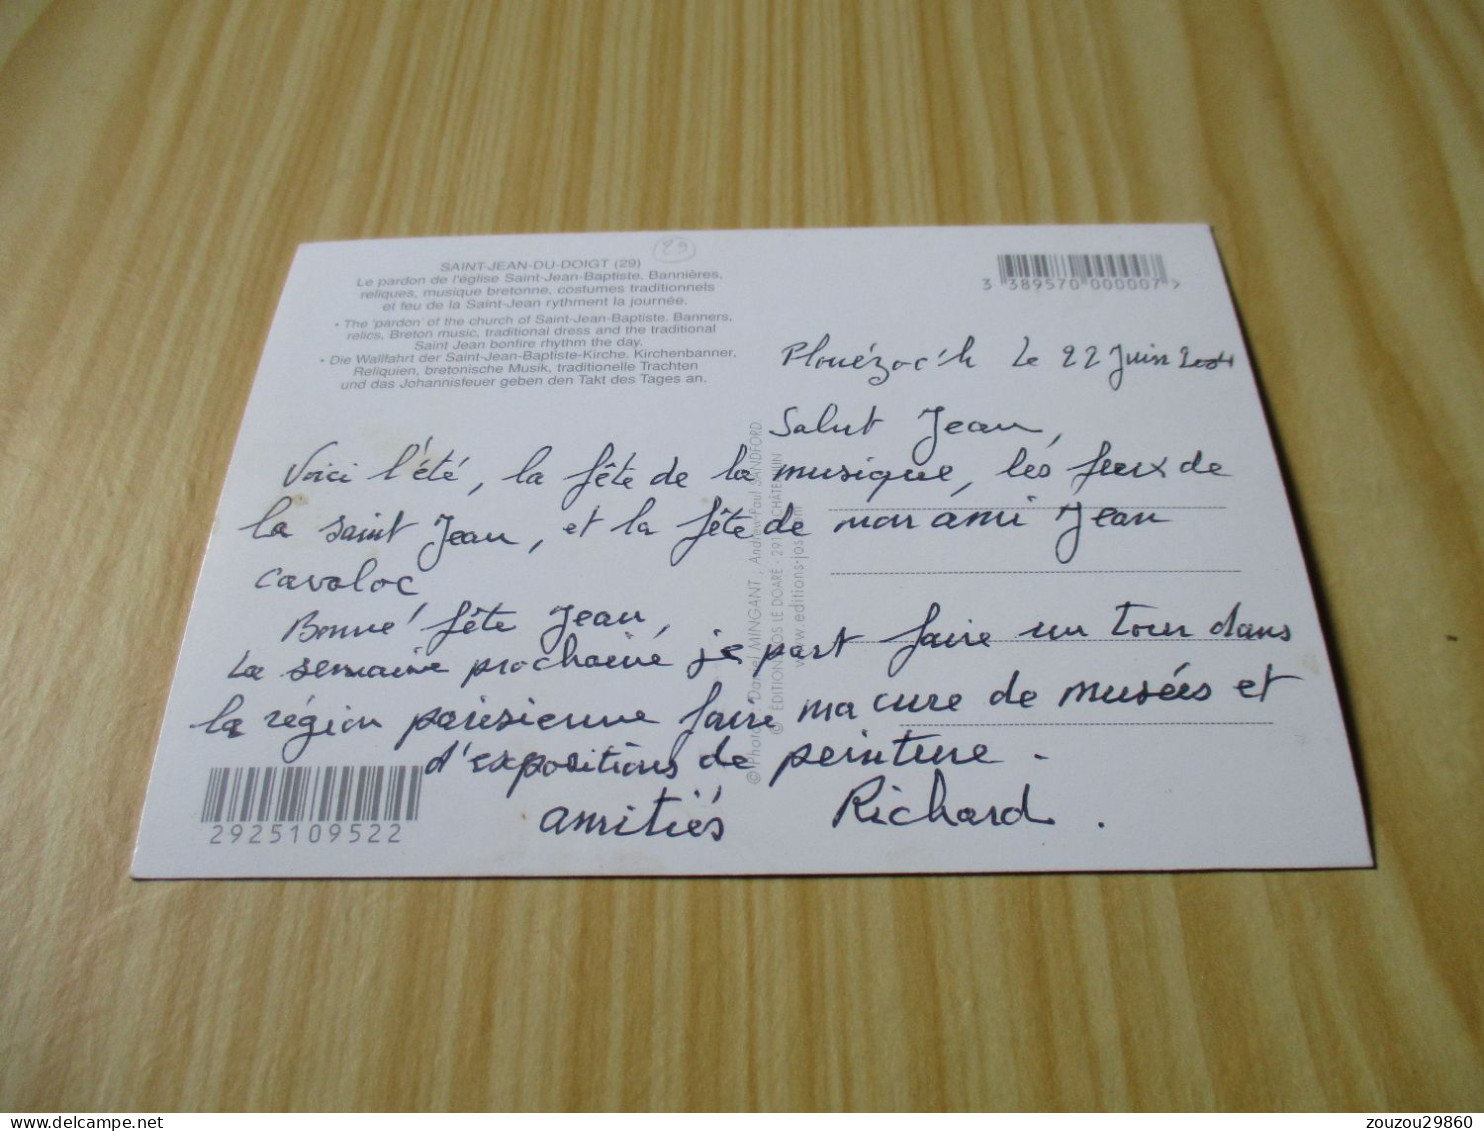 29
SAINT-JEAN-DU-DOIGT (29)
Le pardon de l'église Saint-Jean-Baptiste. Bannières,
reliques, musique bretonne, costumes traditionnels
et feu de la Saint-Jean rythment la journée.
• The 'pardon' of the church of Saint-Jean-Baptiste. Banners,
relics, Breton music, traditional dress and the traditional
Saint Jean bonfire rhythm the day.
• Die Wallfahrt der Saint-Jean-Baptiste-Kirche. Kirchenbanner,
Reliquien, bretonische Musik, traditionelle Trachten
und das Johannisfeuer geben den Takt des Tages an.
3 389570 000007 >
Plouézoc'h le 22 Juin 2004
Salut Jean,
Voici l'été, la fête de la musique, les feux de
la saint Jean, et la fête de mon ami Jean
Cavaloc
Bonne fête Jean,
La semaine prochaine je part faire un tour dans
la région parisienne faire ma cure de musées et
d'expositions de peinture.
amitiés Richard.
2925109522
© Photos : Daniel MINGANT ; Andrew-Paul SANDFORD
© ÉDITIONS JOS LE DOARÉ - 291 CHÂTEAULIN
www.editions-jos
zouzou29860